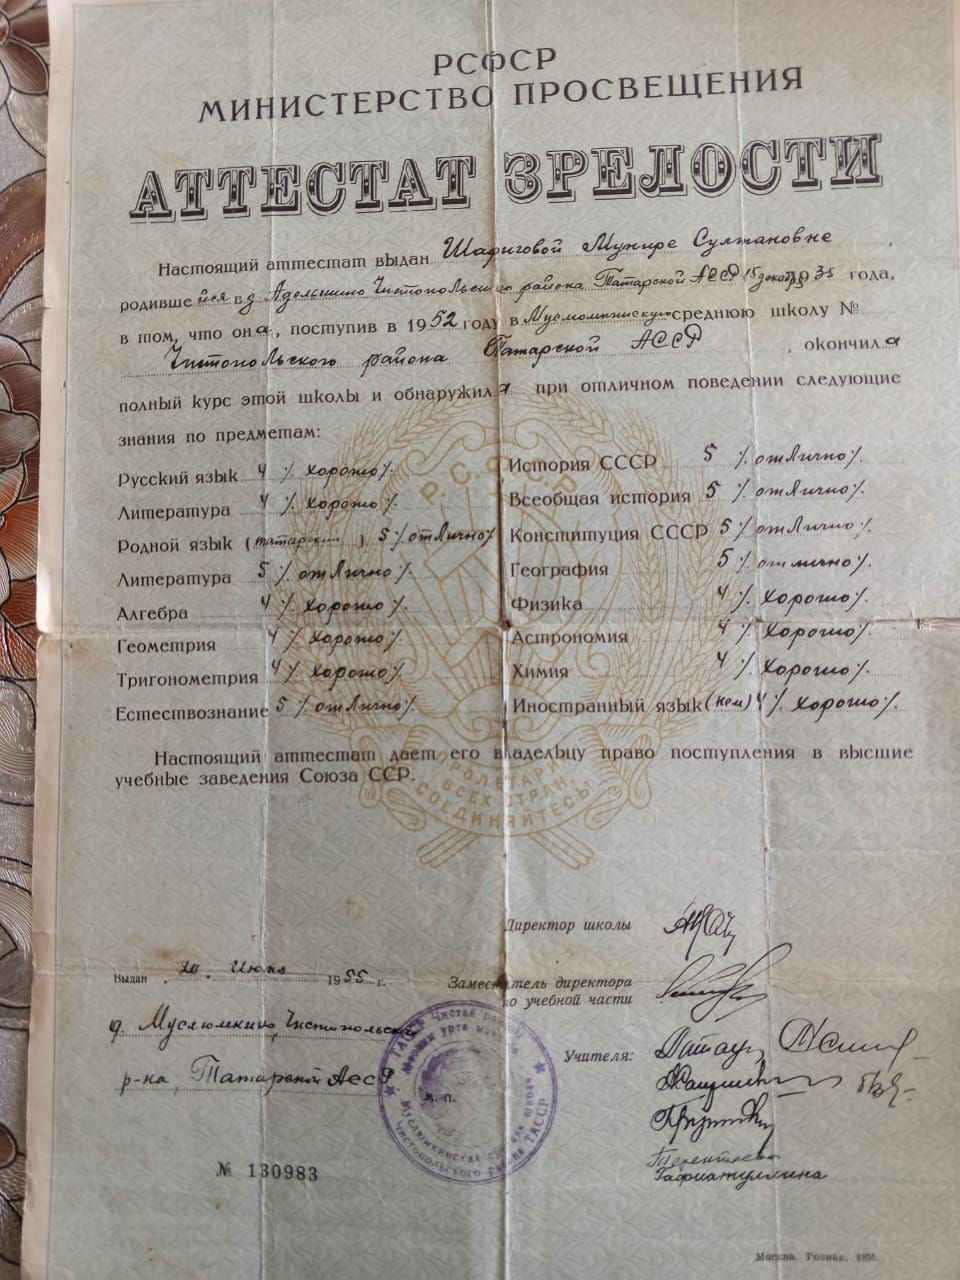 РСФСР
МИНИСТЕРСТВО ПРОСВЕЩЕНИЯ
АТТЕСТАТ ЗРЕЛОСТИ
Настоящий аттестат выдан Шафиговой Мунире Султановне,
родившейся в д. Адельшино Чистопольского района Татарской АССР 15 декабря 1935 года,
в том, что она, поступив в 1952 году в Муслюмкинскую среднюю школу №
Чистопольского района Татарской АССР, окончила
полный курс этой школы и обнаружила при отличном поведении следующие
знания по предметам:
Русский язык 4 /. хорошо /.
Литература 4 /. хорошо /.
Родной язык (татарский) 5 /. отлично /.
Литература 5 /. отлично /.
Алгебра 4 /. хорошо /.
Геометрия 4 /. хорошо /.
Тригонометрия 4 /. хорошо /.
Естествознание 5 /. отлично /.
История СССР 5 /. отлично /.
Всеобщая история 5 /. отлично /.
Конституция СССР 5 /. отлично /.
География 5 /. отлично /.
Физика 4 /. хорошо /.
Астрономия 4 /. хорошо /.
Химия 4 /. хорошо /.
Иностранный язык (нем) 4 /. хорошо /.
Р.С.Ф.С.Р.
ПРОЛЕТАРИИ
ВСЕХ СТРАН,
СОЕДИНЯЙТЕСЬ!
Настоящий аттестат дает его владельцу право поступления в высшие
учебные заведения Союза ССР.
Директор школы
Выдан 20 июня 1955 г.
Заместитель директора
по учебной части
д. Муслюмкино, Чистопольск.
р-на, Татарской АССР
Учителя:
Терентьева
Гафиатуллина
М. П.
ТАССР
МУСЛЮМКИНСКАЯ СРЕДНЯЯ ШКОЛА
ЧИСТОПОЛЬСКОГО РАЙОНА ТАССР
№ 130983
Москва. Гознак. 1955.